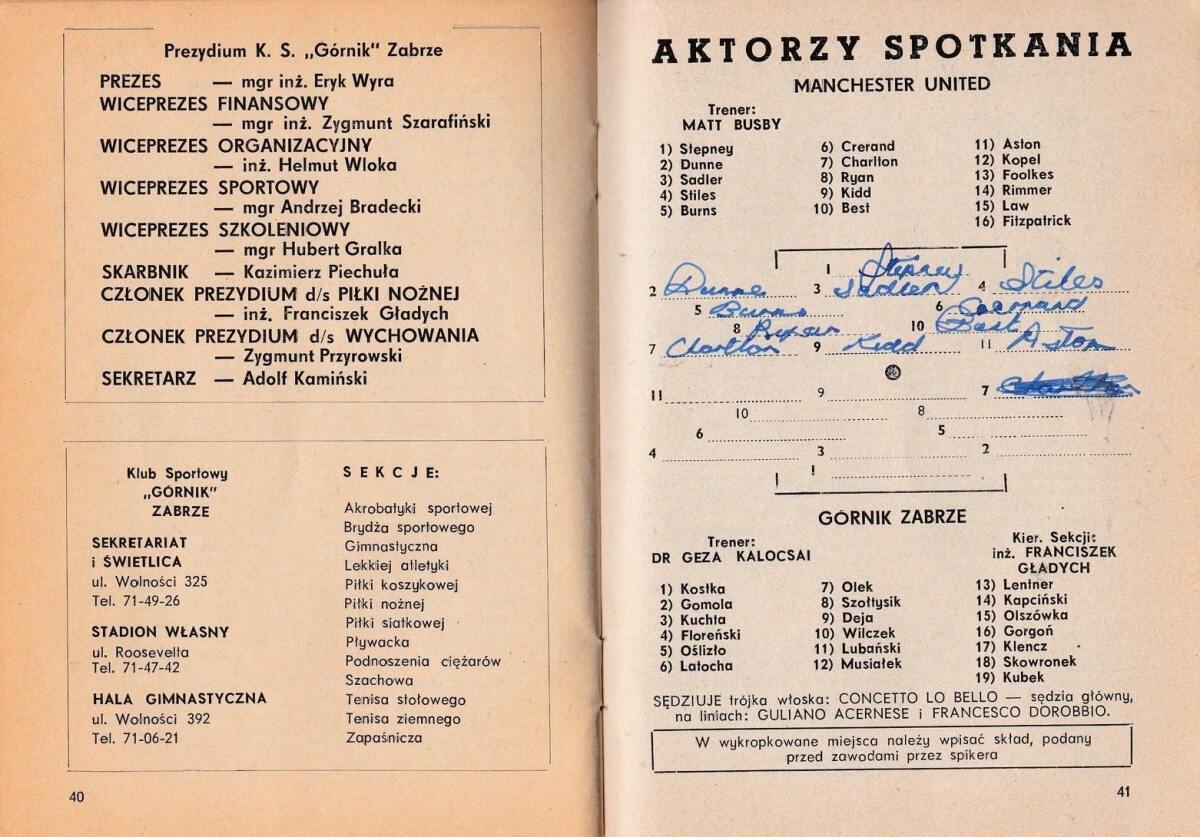 Prezydium K. S. „Górnik" Zabrze
PREZES — mgr inż. Eryk Wyra
WICEPREZES FINANSOWY
— mgr inż. Zygmunt Szarafiński
WICEPREZES ORGANIZACYJNY
— inż. Helmut Wloka
WICEPREZES SPORTOWY
— mgr Andrzej Bradecki
WICEPREZES SZKOLENIOWY
— mgr Hubert Gralka
SKARBNIK — Kazimierz Piechuła
CZŁONEK PREZYDIUM d/s PIŁKI NOŻNEJ
— inż. Franciszek Gładych
CZŁONEK PREZYDIUM d/s WYCHOWANIA
— Zygmunt Przyrowski
SEKRETARZ — Adolf Kamiński
Klub Sportowy
„GÓRNIK"
ZABRZE
SEKRETARIAT
i ŚWIETLICA
ul. Wolności 325
Tel. 71-49-26
STADION WŁASNY
ul. Roosevelta
Tel. 71-47-42
HALA GIMNASTYCZNA
ul. Wolności 392
Tel. 71-06-21
SEKCJE:
Akrobatyki sportowej
Brydża sportowego
Gimnastyczna
Lekkiej atletyki
Piłki koszykowej
Piłki nożnej
Piłki siatkowej
Pływacka
Podnoszenia ciężarów
Szachowa
Tenisa stołowego
Tenisa ziemnego
Zapaśnicza
40
AKTORZY SPOTKANIA
MANCHESTER UNITED
Trener:
MATT BUSBY
1) Stepney
2) Dunne
3) Sadler
4) Stiles
5) Burns
6) Crerand
7) Charlton
8) Ryan
9) Kidd
10) Best
11) Aston
12) Kopel
13) Foolkes
14) Rimmer
15) Law
16) Fitzpatrick
1 Stepney
2 Dunne 3 Sadler 4 Stiles
5 Burns 6
8 Ryan 10 Best
7 Charlton 9 Kidd 11 Aston
11 9 7 Charlton
10 8
6 5
4 3 2
1
GÓRNIK ZABRZE
Trener:
DR GEZA KALOCSAI
Kier. Sekcji:
inż. FRANCISZEK
GŁADYCH
1) Kostka
2) Gomola
3) Kuchta
4) Floreński
5) Oślizło
6) Latocha
7) Olek
8) Szołtysik
9) Deja
10) Wilczek
11) Lubański
12) Musiałek
13) Lentner
14) Kapciński
15) Olszówka
16) Gorgoń
17) Klencz
18) Skowronek
19) Kubek
SĘDZIUJE trójka włoska: CONCETTO LO BELLO — sędzia główny,
na liniach: GULIANO ACERNESE i FRANCESCO DOROBBIO.
W wykropkowane miejsca należy wpisać skład, podany
przed zawodami przez spikera
41